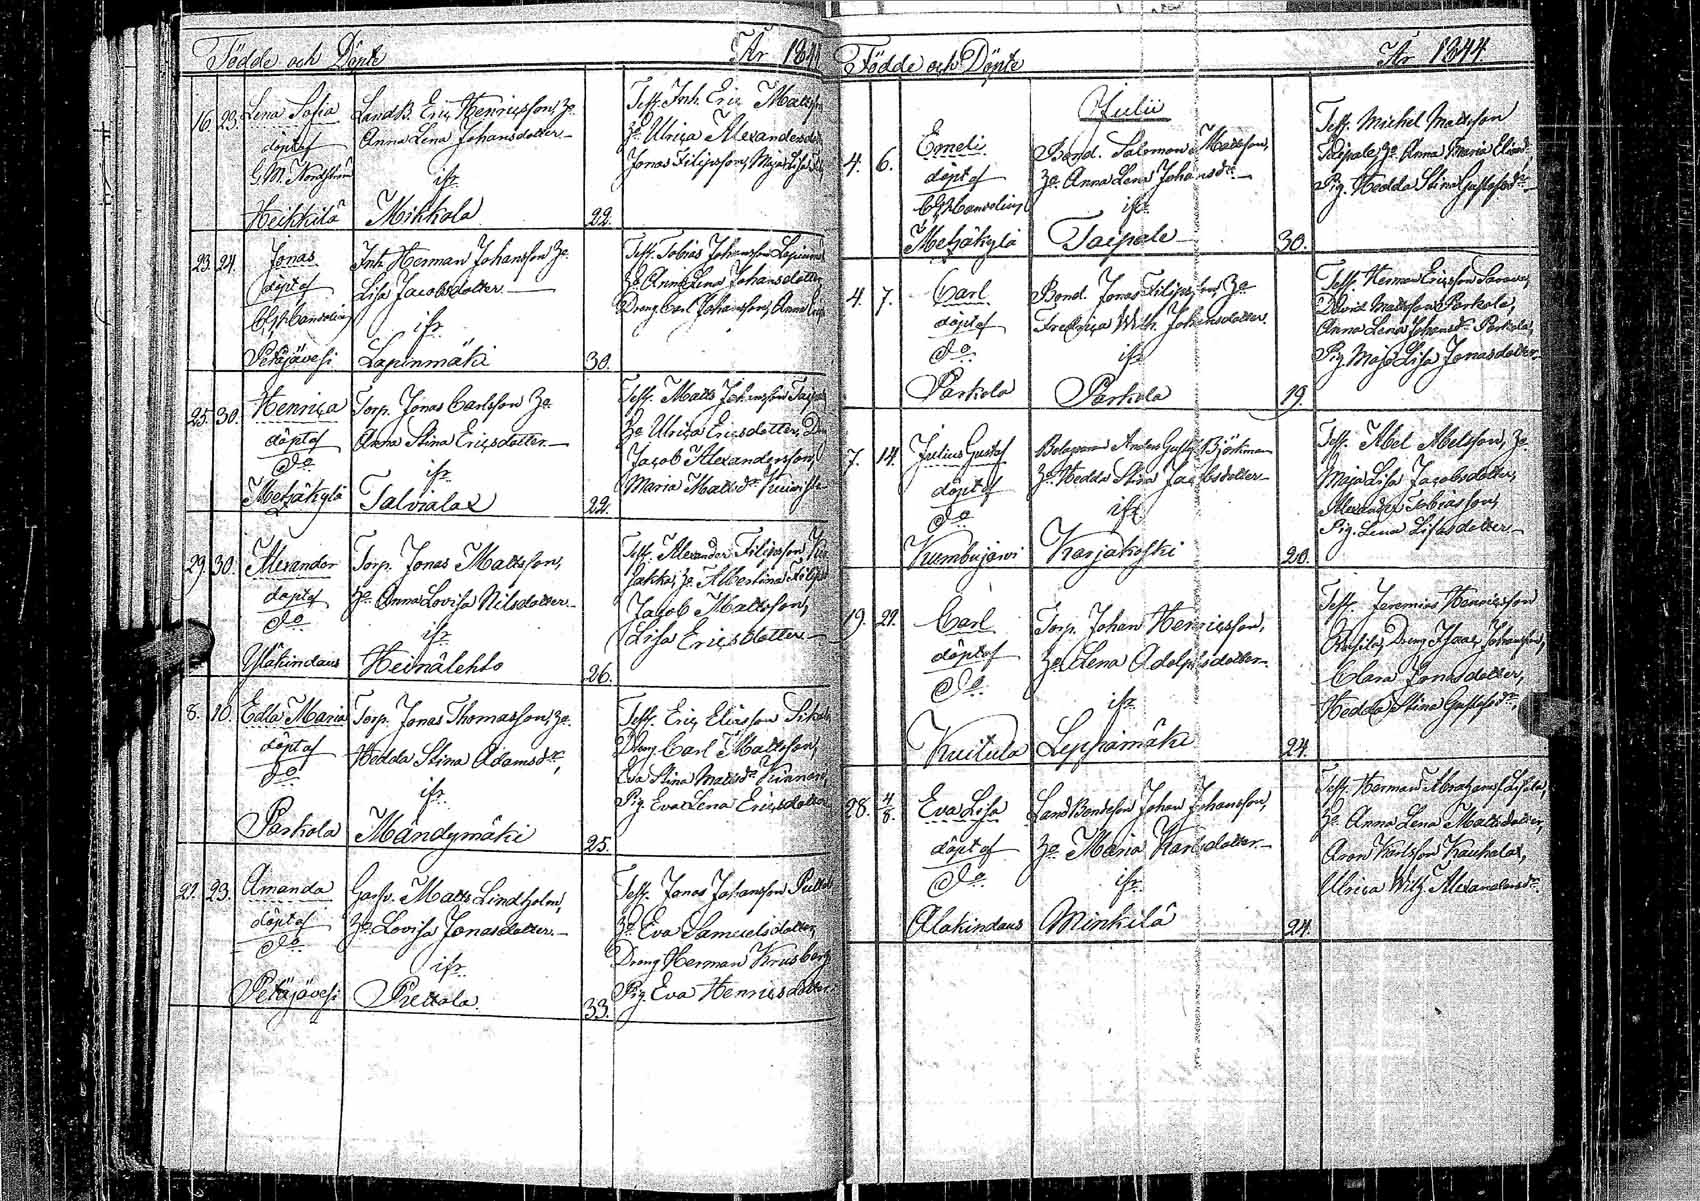 Födde och Döpte År 1844
16. 23. Lena Sofia
döpt af
G. M. Nordström
Heikkilä
Landb. Eric Henricsson, Ho
Anna Lena Johansdotter
ifr.
Mikkola
22.
Test. Inh. Eric Matsson
Ho Ulrica Alexandersdotter
Jonas Filipsson, Maja Lisa
23. 24. Jonas
döpt af
Petäjävesi
Inh. Herman Johansson Ho
Lisa Jacobsdotter
ifr.
Lapinmäki
30.
Test. Tobias Johansson Lapinmäki
Ho Anna Lena Johansdotter
Dreng Carl Johansson, Anna
25. 30. Henrica
döpt af
do
Metzäkylä
Torp. Jonas Carlsson Ho
Anna Stina Ericsdotter
ifr.
Talvialax
22.
Test. Matts Johansson
Ho Ulrica Ericsdotter,
Jacob Alexandersson,
Maria Mattsdr
29. 30. Alexander
döpt af
do
Yläkindaus
Torp. Jonas Mattsson,
Ho Anna Lovisa Nilsdotter
ifr.
Heinälehto
26.
Test. Alexander Filipsson
Ho Albertina
Jacob Mattsson,
Lisa Ericsdotter
8. 10. Edla Maria
döpt af
do
Parkola
Torp. Jonas Thomasson, Ho
Hedda Stina Adamsdr,
ifr.
Mändymäki
25.
Test. Eric Eliasson
Dreng Carl Mattsson,
Eva Stina Mattsdr Kinnari,
Pig. Eva Lena Ericsdotter
22. 23. Amanda
döpt af
do
Petäjävesi
Garfv. Matts Lindholm,
Ho Lovisa Jonasdotter
ifr.
Puttola
33.
Test. Jonas Johansson
Ho Eva Samuelsdotter
Dreng Herman Krusberg
Pig. Eva Henricsdotter
Födde och Döpte År 1844.
Julii
4. 6. Emeli
döpt af
Metzäkylä
Bond. Salomon Mattsson,
Ho Anna Lena Johansdr
ifr.
Taipale
30.
Test. Michel Mattsson
Taipale, Ho Anna Maria
Pig. Hedda Stina Gustafsdr
4. 7. Carl
döpt af
do
Parkola
Bond. Jonas Filipsson, Ho
Fredrica Wilh. Johansdotter.
ifr.
Parkola
19.
Test. Herman Ericsson
David Mattsson Parkola,
Anna Lena Johansdr Parkola,
Pig. Maja Lisa Jonasdotter
7. 14. Julius Gustaf
döpt af
do
Kumbujärvi
Bolagsman Anders Gustaf Björkman
Ho Hedda Stina Jacobsdotter
ifr.
Karjakoski
20.
Test. Abel Abelsson, Ho
Maja Lisa Jacobsdotter,
Alexander Tobiasson,
Pig. Lena Lisasdotter
19. 29. Carl
döpt af
do
Kuitula
Torp. Johan Henricsson,
Ho Lena Adolphsdotter
ifr.
Leppämäki
24.
Test. Jeremias Henricsson
Dreng Isaac Johansson,
Clara Jonasdotter,
Hedda Stina Gustafsdr,
28. 4/8. Eva Lisa
döpt af
do
Alakindaus
Landbondeson Johan Johansson,
Ho Maria Karlsdotter
ifr.
Minkilä
24.
Test. Herman Abrahamss.
Ho Anna Lena Mattsdotter,
Aron Karlsson Kauhalax,
Ulrica Wilh. Alexandersdr